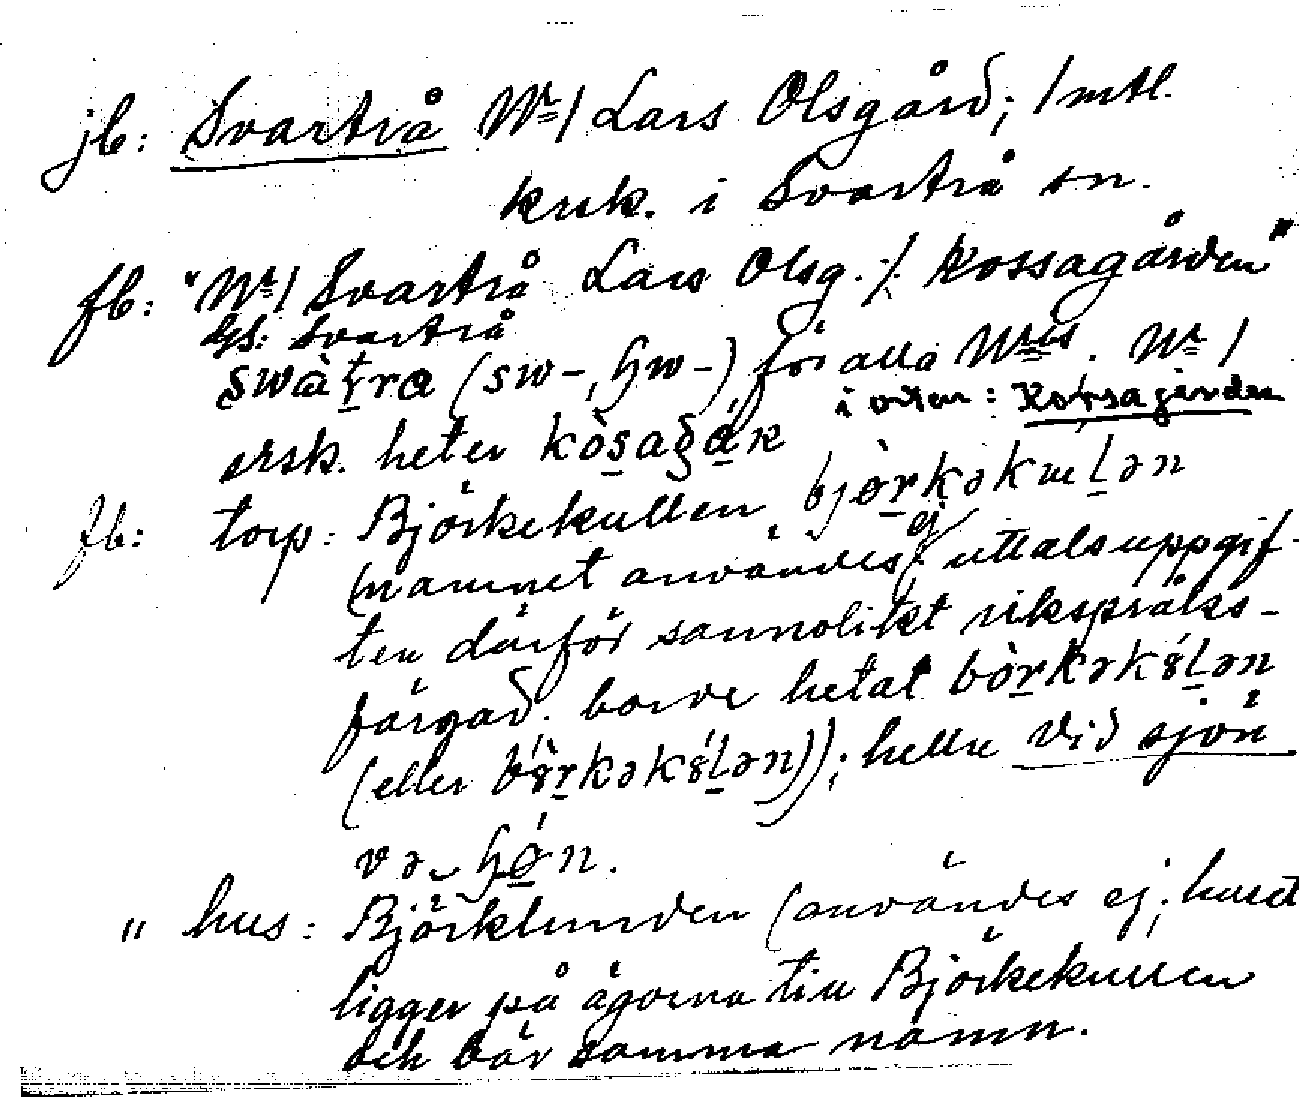 jb: Svartrå Nr 1 Lars Olsgård; 1 mtl.
krsk. i Svartrå sn.
fb: "Nr 1 Svartrå Lars Olsg. ./. Kossagården"
Gs: Svartrå
swàtra (sw-, ɧw-) för alla Nris. Nr 1
i orten: Korsagården
ersk. heter
fb: torp: Björkekullen
(namnet användes ej, uttalsuppgif-
ten därför sannolikt rikspråks-
färgad. borde hetat
(eller bø̀rkəkǿlən)); heller vid sjön
və ɧǿn.
" hus: Björklunden (användes ej; huset
ligger på ägorna till Björkekullen
och bär samma namn.